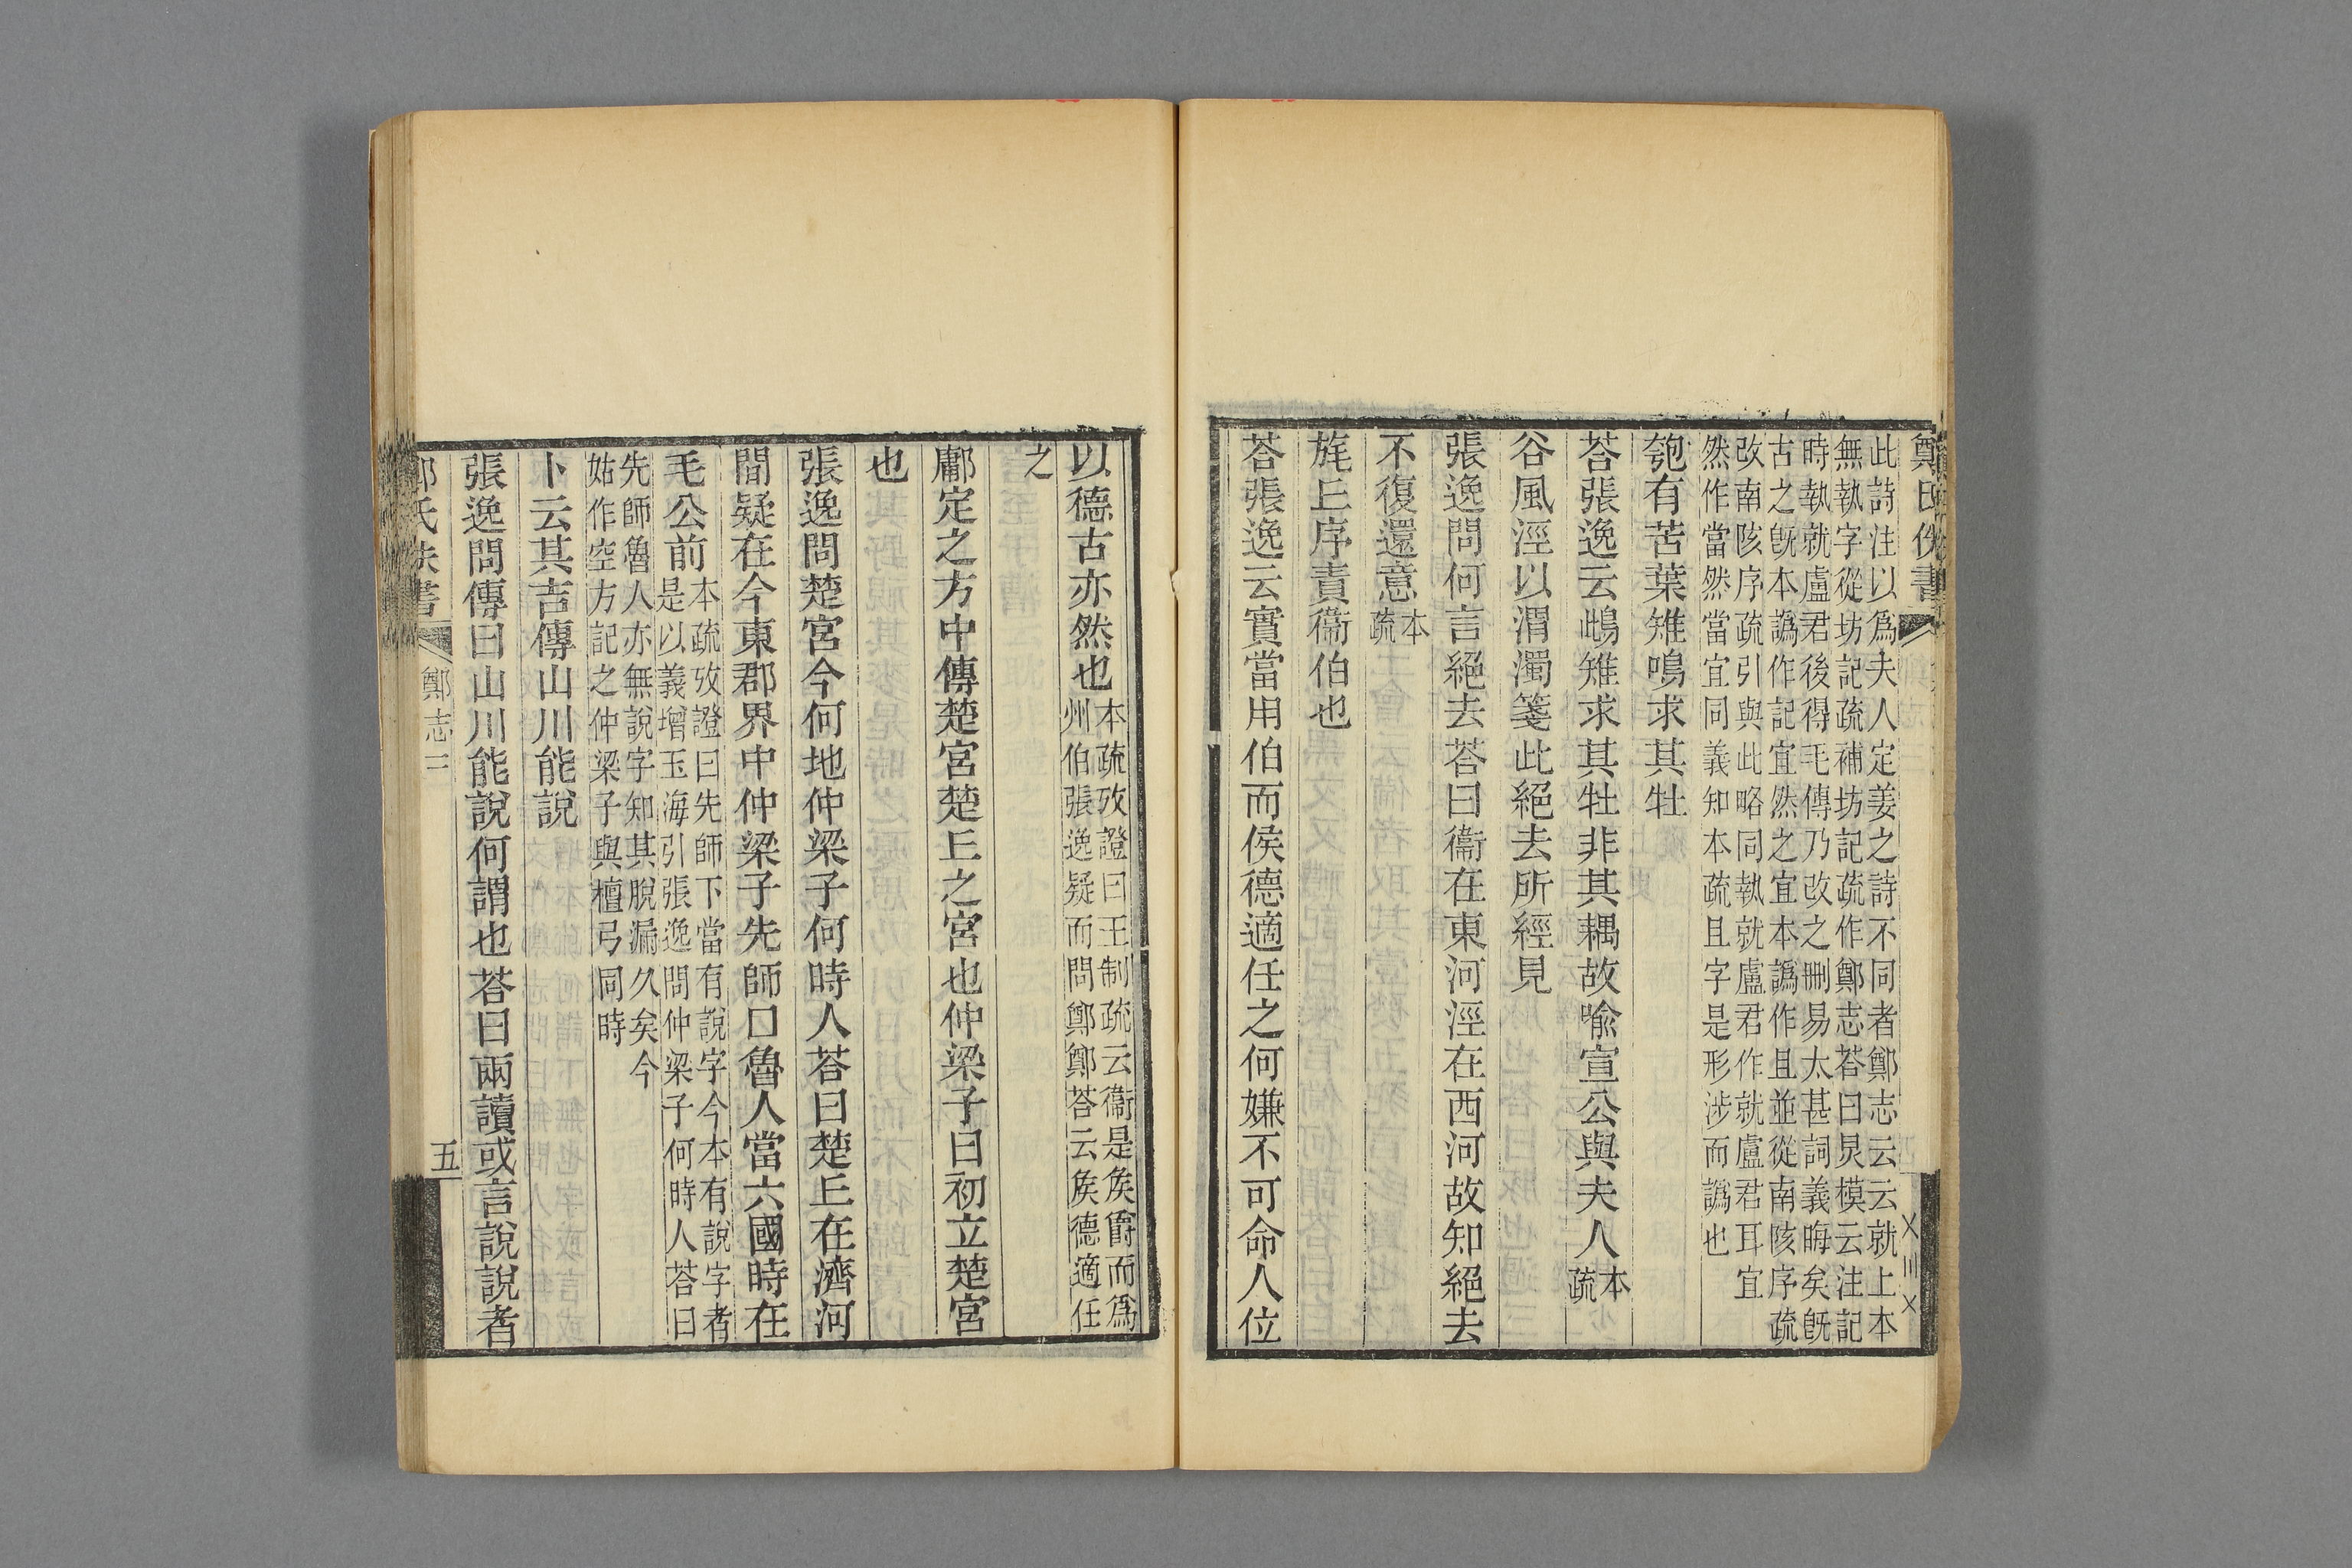 鄭氏佚書
此詩注以爲夫人定姜之詩不同者鄭志云云就上本
無執字從坊記疏補坊記疏作鄭志荅曰炅模云注記
時執就盧君後得毛傳乃改之刪易太甚詞義晦矣旣
古之旣本譌作記宜然之宜本譌作且並從南陔序疏
改南陔序疏引與此略同執就盧君作就盧君耳宜
然作當然當宜同義知本疏且字是形涉而譌也
匏有苦葉雉鳴求其牡
荅張逸云鴟雉求其牡非其耦故喻宣公與夫人本
疏
谷風涇以渭濁箋此絕去所經見
張逸問何言絕去荅曰衞在東河涇在西河故知絕去
不復還意本
疏
旄丘序責衞伯也
荅張逸云實當用伯而侯德適任之何嫌不可命人位
以德古亦然也本疏攷證曰王制疏云衞是矦爵而爲
州伯張逸疑而問鄭鄭荅云矦德適任
之
鄘定之方中傳楚宮楚丘之宮也仲梁子曰初立楚宮
也
張逸問楚宮今何地仲梁子何時人荅曰楚丘在濟河
間疑在今東郡界中仲梁子先師囗魯人當六國時在
毛公前本疏攷證曰先師下當有說字今本有說字者
是以義增玉海引張逸問仲梁子何時人荅曰
先師魯人亦無說字知其脫漏久矣今
姑作空方記之仲梁子與檀弓同時
卜云其吉傳山川能說
張逸問傳曰山川能說何謂也荅曰兩讀或言說說者
氏佚書
鄭志三
五